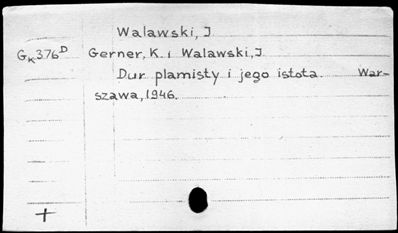 Walawski, J
GK376D Gerner, K. i Walawski, J
Dur plamisty i jego istota. War-
szawa, 1946.
+